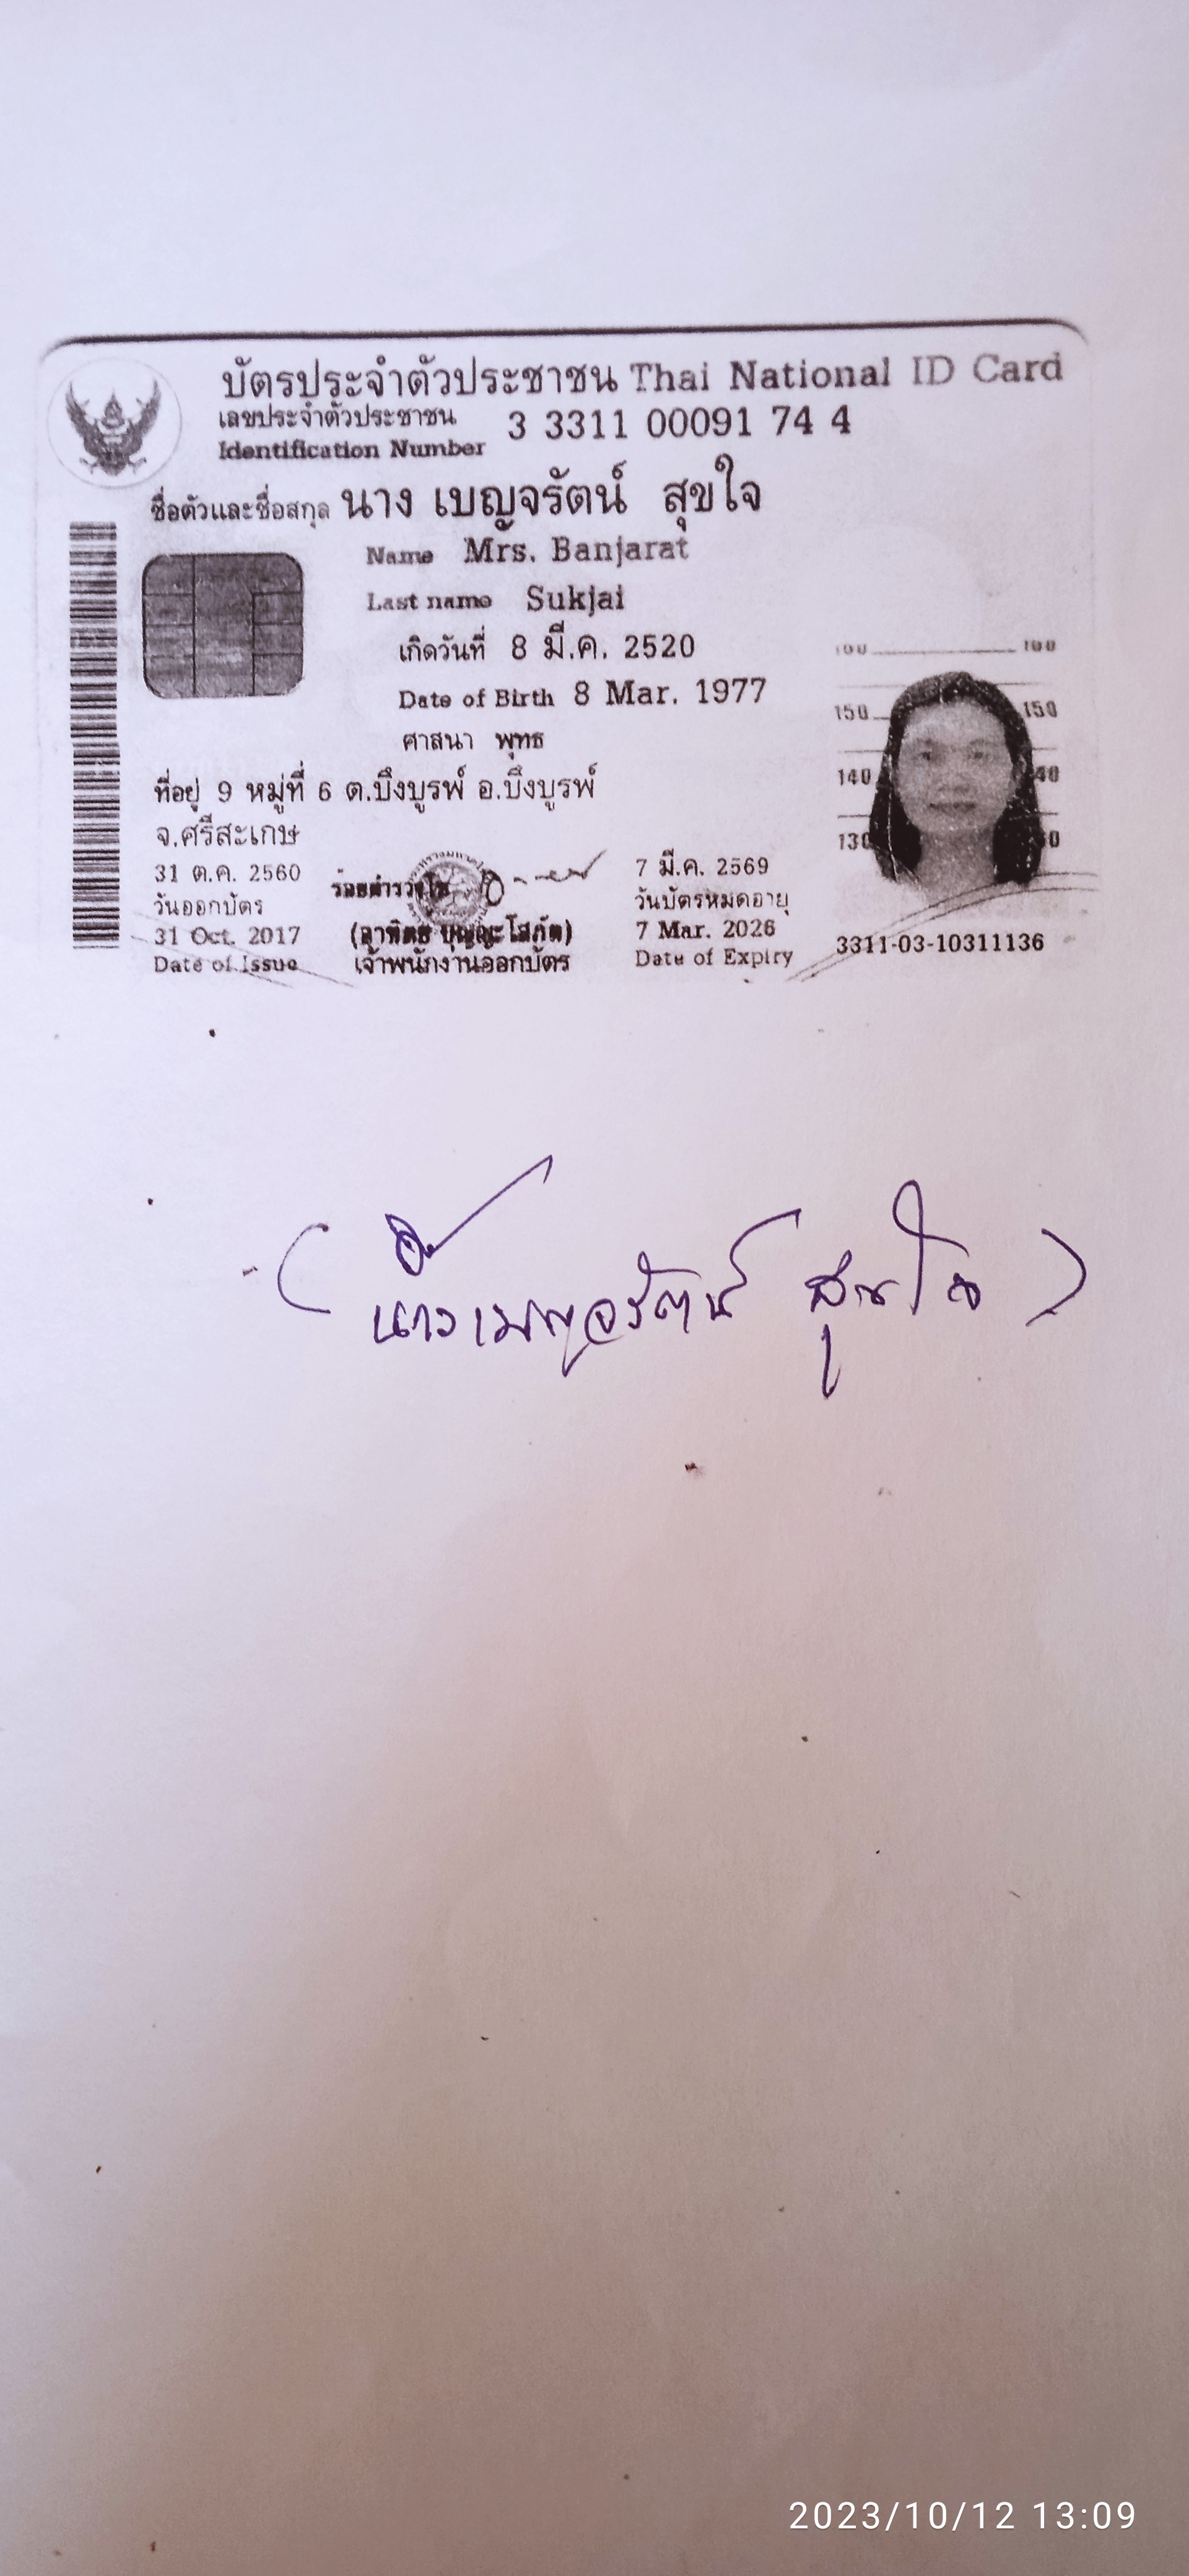 บัตรประจำตัวประชาชน Thai National ID Card
เลขประจำตัวประชาชน
Identification Number 3 3311 00091 74 4
ชื่อตัวและชื่อสกุล นาง เบญจรัตน์ สุขใจ
Name Mrs. Banjarat
Last name Sukjai
เกิดวันที่ 8 มี.ค. 2520
Date of Birth 8 Mar. 1977
ศาสนา พุทธ
ที่อยู่ 9 หมู่ที่ 6 ต.บึงบูรพ์ อ.บึงบูรพ์
จ.ศรีสะเกษ
31 ต.ค. 2560
วันออกบัตร
31 Oct. 2017
Date of Issue
เจ้าพนักงานออกบัตร
7 มี.ค. 2569
วันบัตรหมดอายุ
7 Mar. 2026
Date of Expiry
150 150
140
3311-03-10311136
(นางเบญจรัตน์ สุขใจ)
2023/10/12 13:09